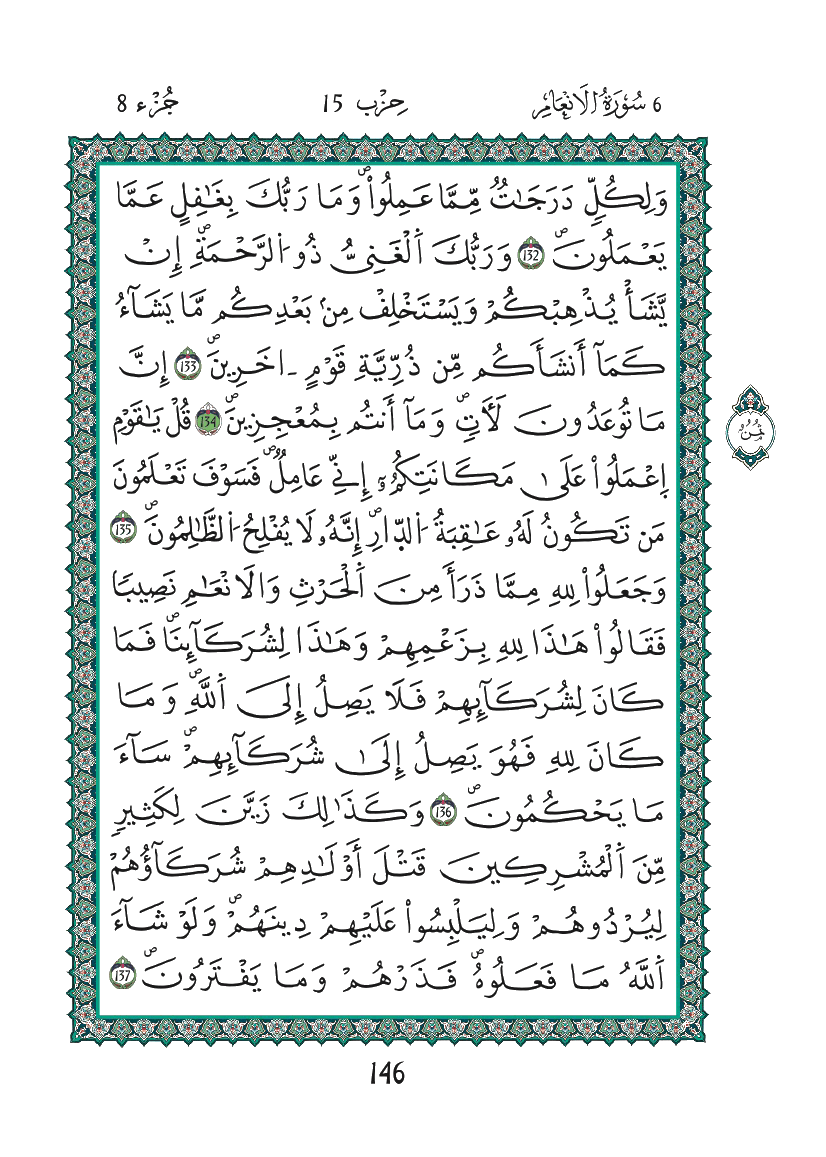 6 سُورَةُ الَانْعَامِ
حِزْب 15
جُزْء 8
وَلِكُلٍّ دَرَجَٰتٌ مِّمَّا عَمِلُواْۖ وَمَا رَبُّكَ بِغَٰفِلٍ عَمَّا
يَعْمَلُونَۖ 132 وَرَبُّكَ اَ۬لْغَنِيُّ ذُو اُ۬لرَّحْمَةِۖ إِنْ
يَّشَأْ يُذْهِبْكُمْ وَيَسْتَخْلِفْ مِنۢ بَعْدِكُم مَّا يَشَآءُ
كَمَآ أَنشَأَكُم مِّن ذُرِّيَّةِ قَوْمٍ ـ اخَرِينَۖ 133 إِنَّ
مَا تُوعَدُونَ لَأٓتٖۖ وَمَآ أَنتُم بِمُعْجِزِينَۖ 134 قُلْ يَٰقَوْمِ
اِ۪عْمَلُواْ عَلَىٰ مَكَانَتِكُمُۥٓ إِنِّي عَامِلٌۖ فَسَوْفَ تَعْلَمُونَ
مَن تَكُونُ لَهُۥ عَٰقِبَةُ اُ۬لدّ۪ارِۖ إِنَّهُۥ لَا يُفْلِحُ اُ۬لظَّٰلِمُونَۖ 135
وَجَعَلُواْ لِلهِ مِمَّا ذَرَأَ مِنَ اَ۬لْحَرْثِ وَالَانْعَٰمِ نَصِيبًا
فَقَالُواْ هَٰذَا لِلهِ بِزَعْمِهِمْ وَهَٰذَا لِشُرَكَآئِنَاۖ فَمَا
كَانَ لِشُرَكَآئِهِمْ فَلَا يَصِلُ إِلَى اَ۬للَّهِۖ وَمَا
كَانَ لِلهِ فَهُوَ يَصِلُ إِلَىٰ شُرَكَآئِهِمْۖ سَآءَ
مَا يَحْكُمُونَۖ 136 وَكَذَٰلِكَ زَيَّنَ لِكَثِيرٍ
مِّنَ اَ۬لْمُشْرِكِينَ قَتْلَ أَوْلَٰدِهِمْ شُرَكَآؤُهُمْ
لِيُرْدُوهُمْ وَلِيَلْبِسُواْ عَلَيْهِمْ دِينَهُمْۖ وَلَوْ شَآءَ
اَ۬للَّهُ مَا فَعَلُوهُۖ فَذَرْهُمْ وَمَا يَفْتَرُونَۖ 137
ثُمُنُ
146